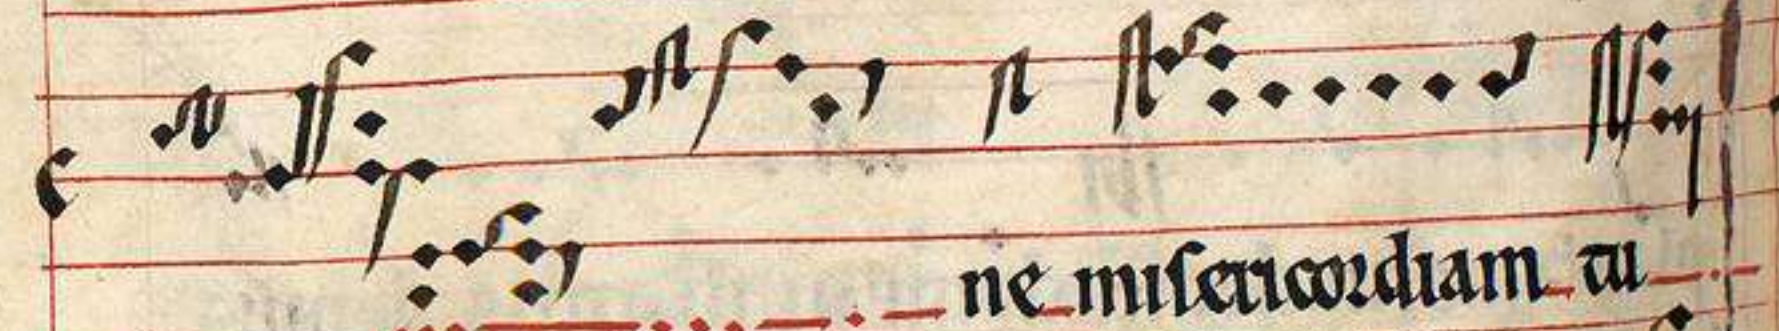 ne misericordiam tu